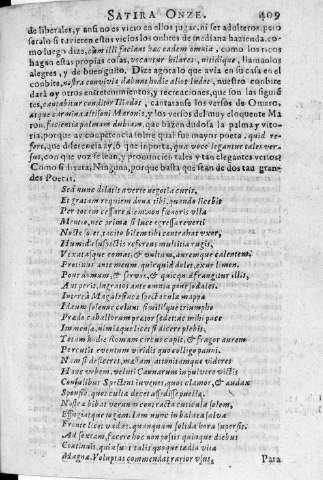 SATIRA ONZE. 409
de liberales, y ansi no es vicio en ellos jugar, ni ser adulteros: pero
seralo si tuvieren estos vicios los onbres de mediana hazienda. co-
mo luego dize, cum illi faciant hac eadem omnia, como los ricos
hagan estas propias cosas, vocantur hilares, nitidique, llamanlos
alegres, y de buen gusto. Dize agora lo que avia en su casa en el
conbite, nostra convivia dabunt hodie alios ludos, nuestro conbite
dará oy otros entretenimientos, y recreaciones, que son las siguiē
tes, cantabitur conditor Iliados, cantaranse los versos de OMERO,
atque carmina altisoni Maronis, y los versos del muy eloquente Ma
ron, facientia palmam dubiam, que hazen dudosa la palma y vito-
ria, porque ay competencia sobre qual fue mayor poeta, quid re-
fert, que diferencia ay, ó que inporta, qua voce legantur tales ver-
sus, con que voz se lean, y pronuncien tales y tan elegantes versos?
Como si dixera: Ninguna, porque basta que sean de dos tan gran-
des Poetas.
Sed nunc dilatis averte negotia curis,
Et gratam requiem dona tibi, quando licebit
Per totum cessare diem: non fœnoris ulla
Mentio, nec prima si luce egressa reverti
Nocte solet, tacito bilem tibi contrahat uxor,
Humida suspectis referens multitia rugis,
Vexatasque comas, & vultum, auremque calentem.
Protinus ante meum quicquid dolet, exue limen.
Pone domum, & servos, & quicquid frangitur illis,
Aut perit, ingratos ante omnia pone sodales.
Interea Megalesiaca spectacula mappa
Idæum solenne colunt similisque triumpho
Præda caballorum prator sedet, ac mihi pace
Immensa, nimiaque licet si dicere plebis,
Totam hodie Romam circus capit, & fragor aurem
Percutit eventum viridis quo colligo panni.
Nam si deficeret, mæstam attonitamque videres
Hanc urbem, veluti Cannarum in pulvere victis
Consulibus. Spectent juvenes, quos clamor, & audax
Sponsio, quos culta decet assedisse puella.
Nostra bibat vernum contracta cuticula solem,
Effugiatque togam. Iam nunc in balnea salva
Fronte licet vadas, quanquam solida hora supersit
Ad sextam, facere hoc non possis quinque diebus
Continuis, quia sunt talis quoque tædia vita
Magna. Voluptas commendat rarior usus.
Para